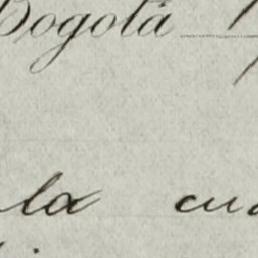 Bogotá
la cu